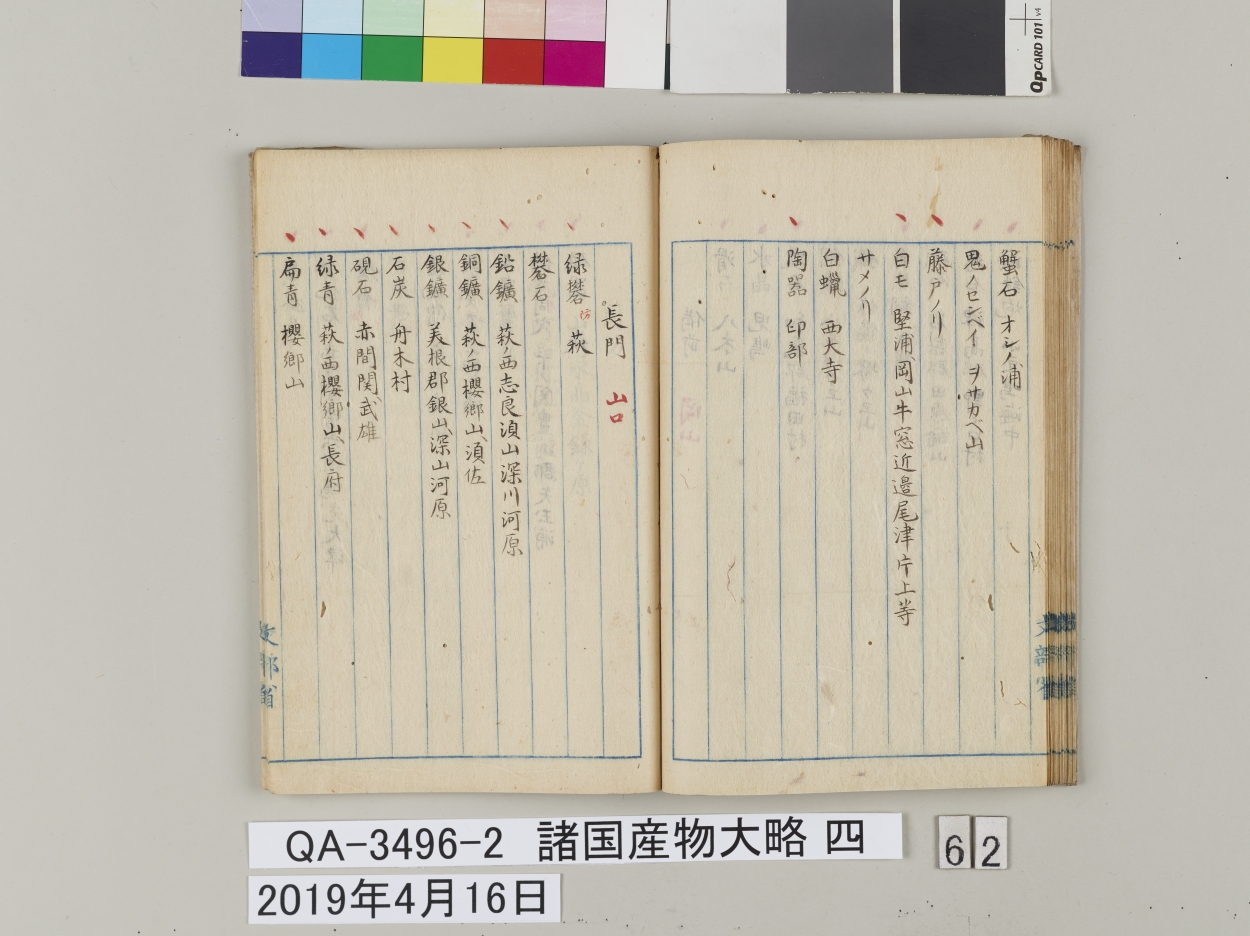 QpCARD 101 v4
蟹石　オシノ浦
鬼ノセンベイ　ヲサカベ山
藤戸ノリ
白モ　堅浦、岡山牛窓近邉尾津片上等
サメノリ
白蠟　西大寺
陶器　印部
長門　山口
緑礬　萩
礬石
鉛鑛　萩ノ西志良湏山深川河原
銅鑛　萩ノ西櫻郷山、湏佐
銀鑛　美根郡銀山、深山河原
石炭　舟木村
硯石　赤間関、武雄
緑青　萩ノ西櫻郷山、長府
扁青　櫻郷山
文部省
文部省
QA-3496-2　諸国産物大略 四
62
2019年4月16日